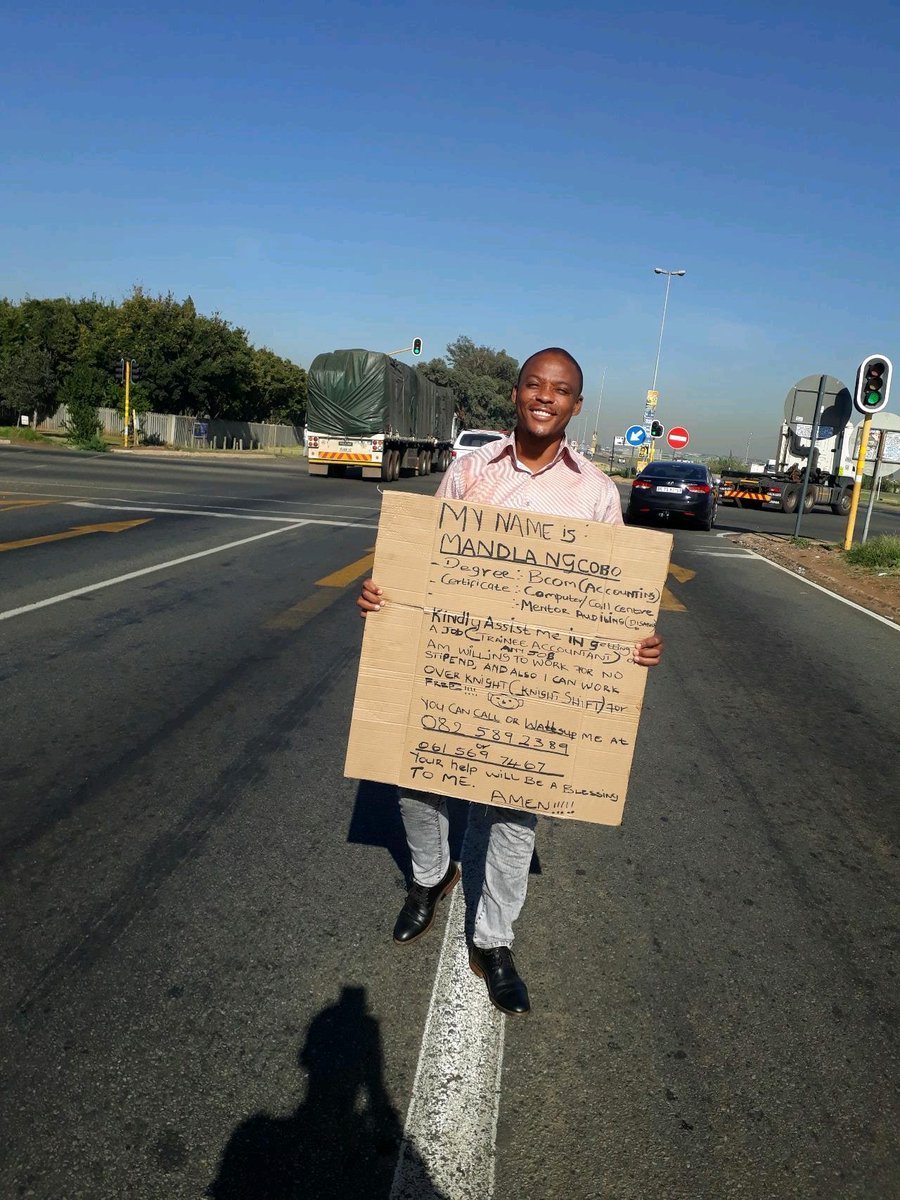 MY NAME IS:
MANDLA NGCOBO
- Degree: Bcom (Accounting)
- Certificate: Computer/Call Centre
: Mentor Audiving
Kindly Assist me IN getting
A Job (TRAINEE ACCOUNTANT)
ANY JOB
AM WILLING TO WORK FOR NO
STIPEND, AND ALSO I CAN WORK
OVER KNIGHT (KNIGHT SHIFT) For
FREE!!!!
YOU CAN CALL OR Wattsup ME AT
082 589 2389
or
061 569 7467
Your help WILL BE A BLESSING
TO ME. AMEN!!!!!